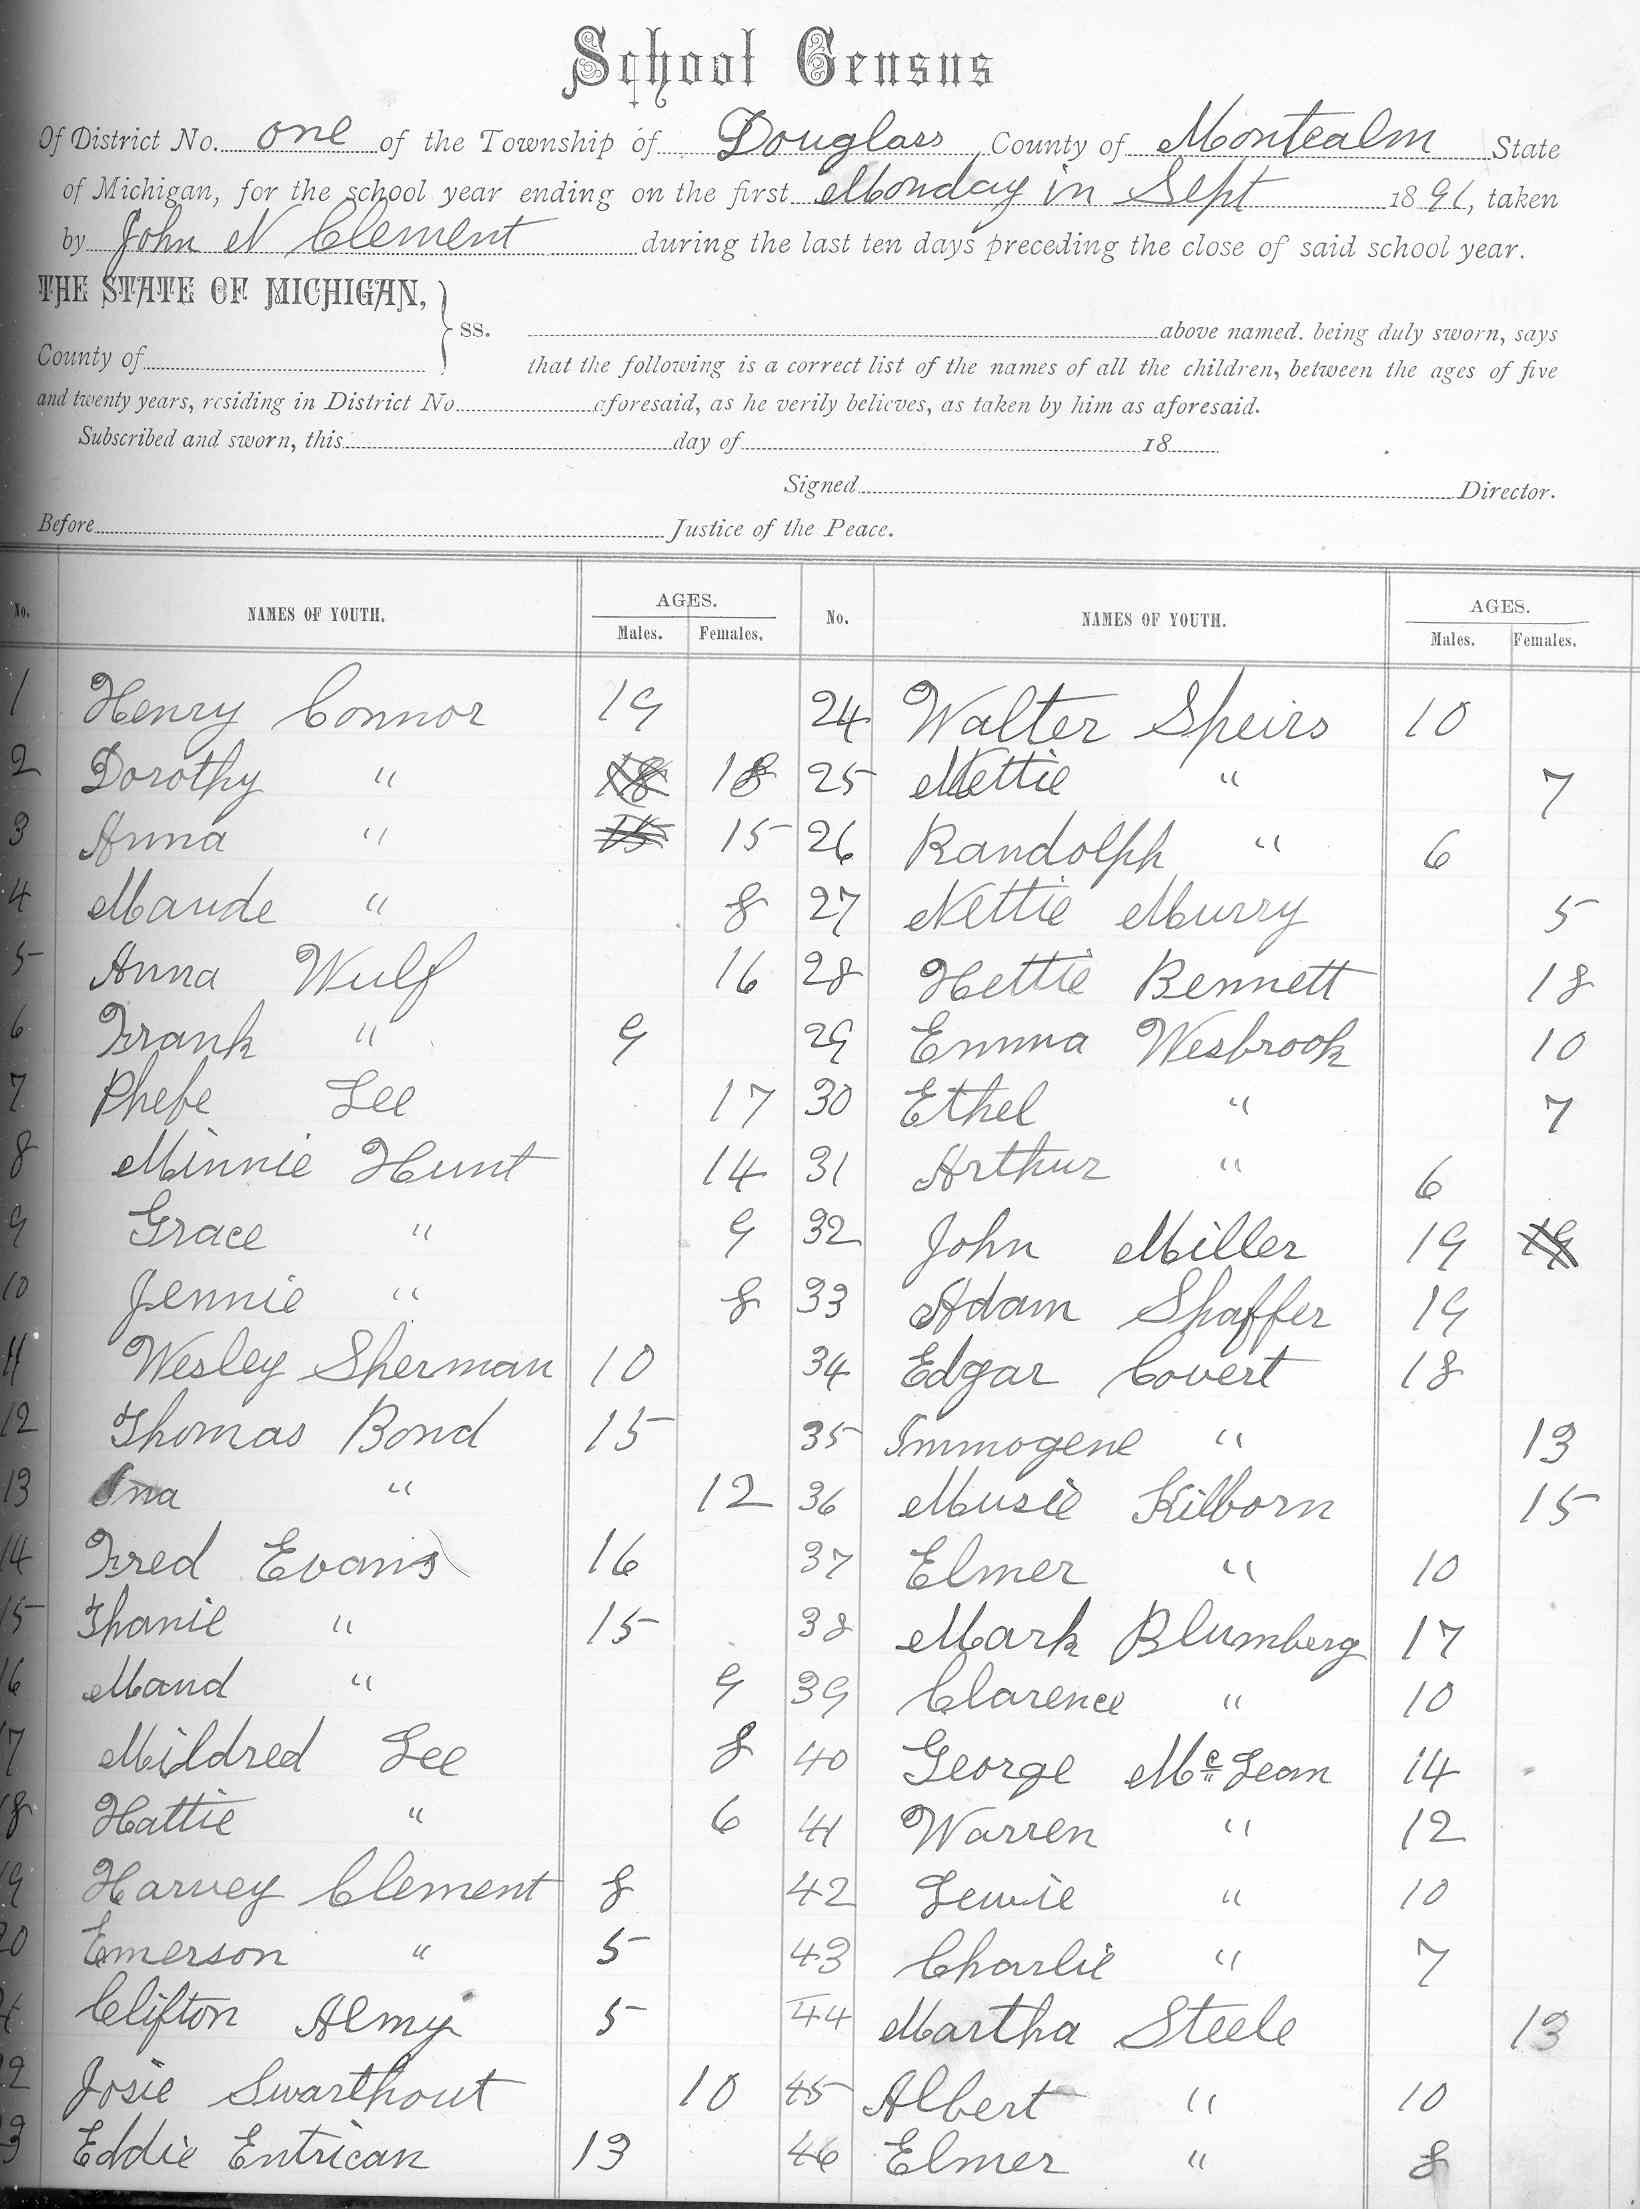 School Census
Of District No. one of the Township of Douglass County of Montcalm State
of Michigan, for the school year ending on the first Monday in Sept 1891, taken
by John N Clement during the last ten days preceding the close of said school year.
THE STATE OF MICHIGAN,
County of
ss.
above named. being duly sworn, says
that the following is a correct list of the names of all the children, between the ages of five
and twenty years, residing in District No. aforesaid, as he verily believes, as taken by him as aforesaid.
Subscribed and sworn, this day of 18
Signed Director.
Before Justice of the Peace.
No. NAMES OF YOUTH. AGES. Males. Females.
1 Henry Connor 19
2 Dorothy " 18 18
3 Anna " 15 15
4 Maude " 8
5 Anna Wulf 16
6 Frank " 9
7 Phebe Lee 17
8 Minnie Hunt 14
9 Grace " 9
10 Jennie " 8
11 Wesley Sherman 10
12 Thomas Bond 15
13 Ina " 12
14 Fred Evans 16
15 Thanie " 15
16 Maud " 9
17 Mildred Lee 8
18 Hattie " 6
19 Harvey Clement 8
20 Emerson " 5
Clifton Almy 5
2 Josie Swarthout 10
3 Eddie Entrican 13
No. NAMES OF YOUTH. AGES. Males. Females.
24 Walter Speirs 10
25 Nettie " 7
26 Randolph " 6
27 Nettie Murry 5
28 Hettie Bennett 18
29 Emma Wesbrook 10
30 Ethel " 7
31 Arthur " 6
32 John Miller 19 19
33 Adam Shaffer 19
34 Edgar Covert 18
35 Immogene " 13
36 Musie Kilborn 15
37 Elmer " 10
38 Mark Blumberg 17
39 Clarence " 10
40 George McLean 14
41 Warren " 12
42 Lewie " 10
43 Charlie " 7
44 Martha Steele 13
45 Albert " 10
46 Elmer " 8